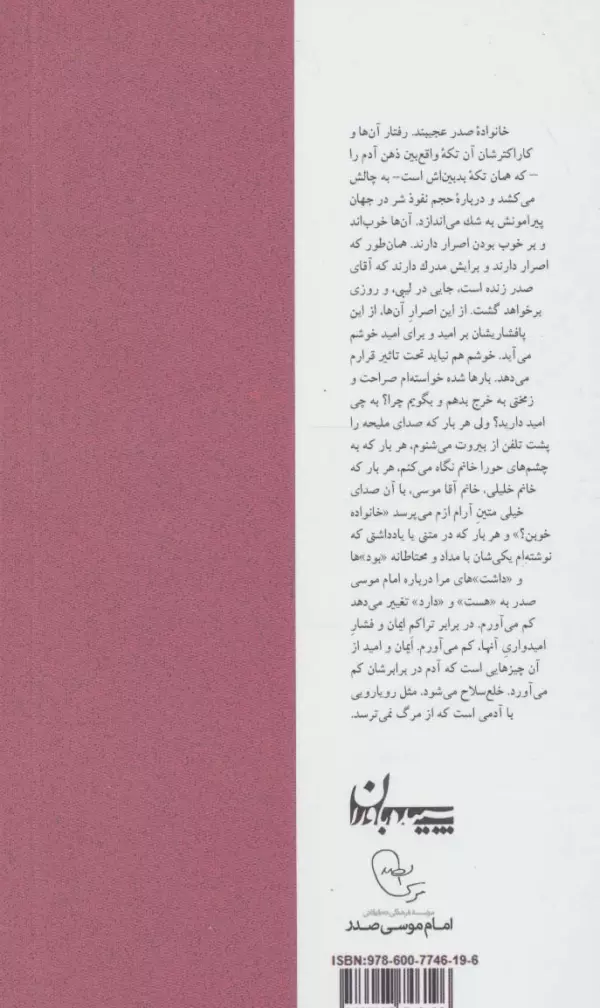 خانوادهٔ صدر عجیبند. رفتار آن‌ها و
کاراکترشان آن تکهٔ واقع‌بین ذهن آدم را
– که همان تکهٔ بدبین‌اش است– به چالش
می‌کشد و دربارهٔ حجم نفوذ شر در جهان
پیرامونش به شك می‌اندازد. آن‌ها خوب‌اند
و بر خوب بودن اصرار دارند. همان‌طور که
اصرار دارند و برایش مدرك دارند که آقای
صدر زنده است، جایی در لیبی، و روزی
برخواهد گشت. از این اصرارِ آن‌ها، از این
پافشاریشان بر امید و برای امید خوشم
می‌آید. خوشم هم نیاید تحت تاثیر قرارم
می‌دهد. بارها شده خواسته‌ام صراحت و
زمختی به خرج بدهم و بگویم چرا؟ به چی
امید دارید؟ ولی هر بار که صدای ملیحه را
پشت تلفن از بیروت می‌شنوم، هر بار که به
چشم‌های حورا خانم نگاه می‌کنم، هر بار که
خانم خلیلی، خانم آقا موسی، با آن صدای
خیلی متینِ آرام ازم می‌پرسد «خانواده
خوبن؟» و هر بار که در متنی یا یادداشتی که
نوشته‌ام یکی‌شان با مداد و محتاطانه «بود»ها
و «داشت»های مرا درباره امام موسی
صدر به «هست» و «دارد» تغییر می‌دهد
کم می‌آورم. در برابر تراکم ایمان و فشارِ
امیدواریِ آنها، کم می‌آورم. ایمان و امید از
آن چیزهایی است که آدم در برابرشان کم
می‌آورد. خلع‌سلاح می‌شود. مثل رویارویی
با آدمی است که از مرگ نمی‌ترسد.
سپیده‌باوران
مرکز صدر
موسسهٔ فرهنگی تحقیقاتی
امام موسی صدر
ISBN:978-600-7746-19-6